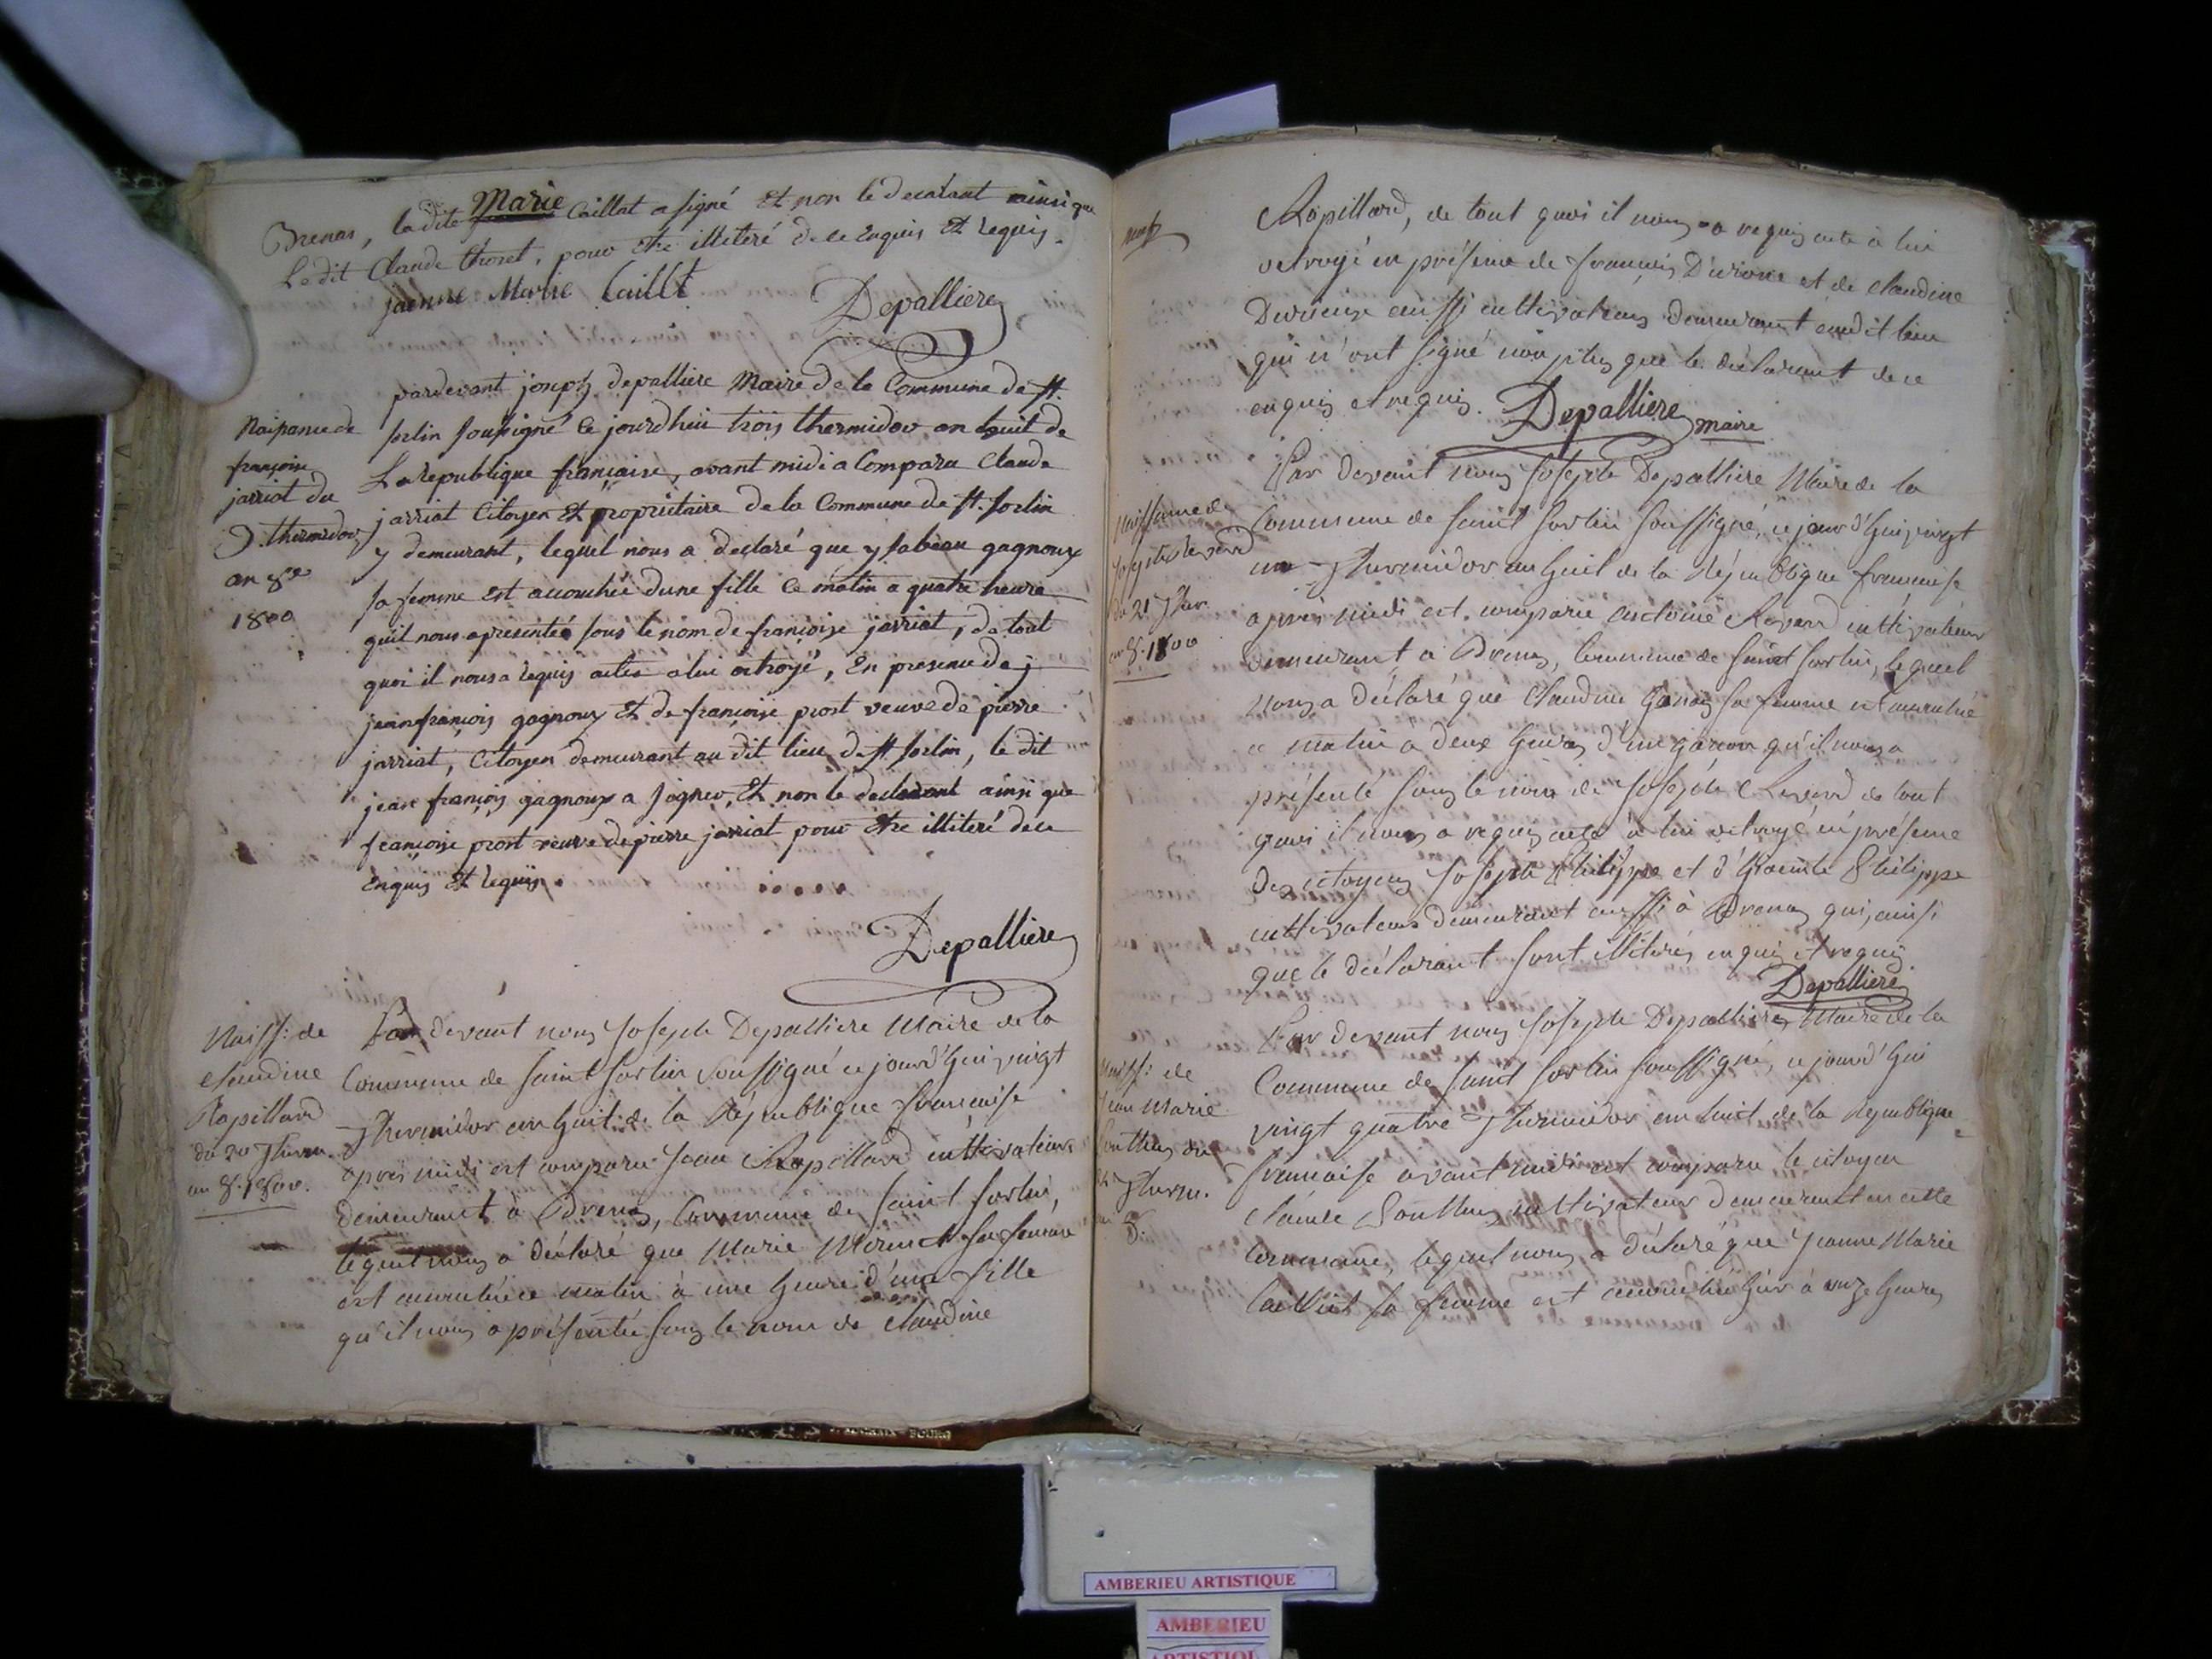 Brenas, la dite Marie Caillat a signé Et non le declarant ainsi que
Le dit Claude thoset, pour Etre illiteré de ce Enquis Et Requis.
jaenne Marie Caillt
Depalliere
Naissance de
françoise
jarriat du
3. thermidor
an 8e
1800
pardevant joseph depalliere Maire de la Commune de st.
sorlin soussigné Ce jourdhui trois thermidor an huit de
La republique française, avant midi a Comparu Claude
jarriat Citoyen Et propriétaire de la Commune de st. sorlin
y demeurant, lequel nous a declaré que ysabeau gagnoux
sa femme Est accouchée dune fille Ce matin a quatre heure
quil nous a presentée sous le nom de françoise jarriat, de tout
quoi il nous a Requis actes a lui octroyé, En presence de j
jeanfrançois gagnoux Et de françoise prost veuve de pierre
jarriat, Citoyen demeurant au dit lieu de st. sorlin, le dit
jean françois gagnoux a signer, Et non le declarant ainsi que
françoise prost veuve de pierre jarriat pour Etre illiteré de ce
Enquis Et Requis.
Depalliere
Naiss: de
claudine
Rapillard
du 20 Therm.
an 8. 1800.
Par devant nous Joseph Depalliere Maire de la
Commune de Saint Sorlin soussigné ce jourd'hui vingt
Thermidor an huit de la République française
après midi est comparu Jean Rapillard cultivateur
demeurant à Brenas, Commune de Saint Sorlin,
lequel nous a déclaré que Marie sa femme
est accouchée ce matin à une heure d'une fille
qu'il nous a présentée sous le nom de claudine
Rapillard, de tout quoi il nous a requis acte à lui
octroyé en présence de françois et de claudine
aussi cultivateurs demeurant audit lieu
qui n'ont signé non plus que le déclarant de ce
enquis et requis. Depalliere maire
Naissance de
Joseph Revard
du 21 Ther.
an 8. 1800
Par devant nous Joseph Depalliere Maire de la
Commune de Saint Sorlin soussigné, ce jourd'hui vingt
un Thermidor an huit de la République française
après midi est comparu Antoine Revard cultivateur
demeurant à Brenas, Commune de Saint Sorlin, lequel
nous a déclaré que Claudine sa femme est accouchée
ce matin à deux heures d'un garçon qu'il nous a
présenté sous le nom de Joseph Revard de tout
quoi il nous a requis acte à lui octroyé en présence
des citoyens Joseph Philippe et d'Hyacinte Philippe
cultivateurs demeurant aussi à Brenas qui, ainsi
que le déclarant sont illitérés enquis et requis.
Depalliere
Naiss: de
Jean Marie
du
Therm.
an 8.
Par devant nous Joseph Depalliere Maire de la
Commune de Saint Sorlin soussigné, ce jourd'hui
vingt quatre Thermidor an huit de la République
française avant midi est comparu le citoyen
Claude cultivateur demeurant en cette
Commune, lequel nous a déclaré que Jeanne Marie
Caillat sa femme est accouchée hier à onze heures
AMBERIEU ARTISTIQUE
AMBERIEU
ARTISTIQUE